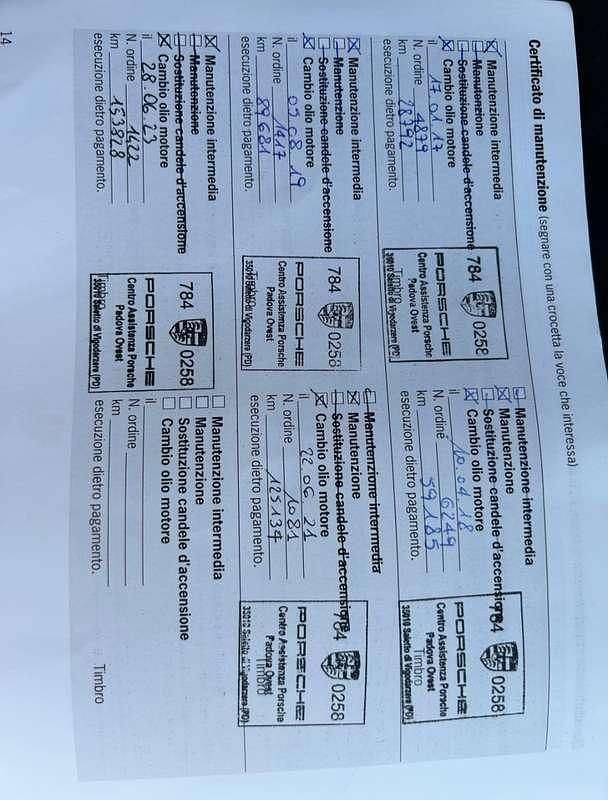 Certificato di manutenzione (segnare con una crocetta la voce che interessa)
Manutenzione intermedia
Manutenzione
Sostituzione candele d'accensione
Cambio olio motore
il 17.01.17
N. ordine 4879
km 28792
esecuzione dietro pagamento.
784 0258
PORSCHE
Centro Assistenza Porsche
Padova Ovest
Timbro
35010 Saletto di Vigodarzere (PD)
Manutenzione intermedia
Manutenzione
Sostituzione candele d'accensione
Cambio olio motore
il 10.04.18
N. ordine 6249
km 59185
esecuzione dietro pagamento.
784 0258
PORSCHE
Centro Assistenza Porsche
Padova Ovest
Timbro
35010 Saletto di Vigodarzere (PD)
Manutenzione intermedia
Manutenzione
Sostituzione candele d'accensione
Cambio olio motore
il 07.08.19
N. ordine 1417
km 89681
esecuzione dietro pagamento.
784 0258
PORSCHE
Centro Assistenza Porsche
Padova Ovest
Timbro
35010 Saletto di Vigodarzere (PD)
Manutenzione intermedia
Manutenzione
Sostituzione candele d'accensione
Cambio olio motore
il 22.06.21
N. ordine 1081
km 125134
esecuzione dietro pagamento.
784 0258
PORSCHE
Centro Assistenza Porsche
Padova Ovest
Timbro
35010 Saletto di Vigodarzere (PD)
Manutenzione intermedia
Manutenzione
Sostituzione candele d'accensione
Cambio olio motore
il 28.06.23
N. ordine 1422
km 153828
esecuzione dietro pagamento.
784 0258
PORSCHE
Centro Assistenza Porsche
Padova Ovest
Timbro
35010 Saletto di Vigodarzere (PD)
Manutenzione intermedia
Manutenzione
Sostituzione candele d'accensione
Cambio olio motore
il
N. ordine
km
esecuzione dietro pagamento.
Timbro
14